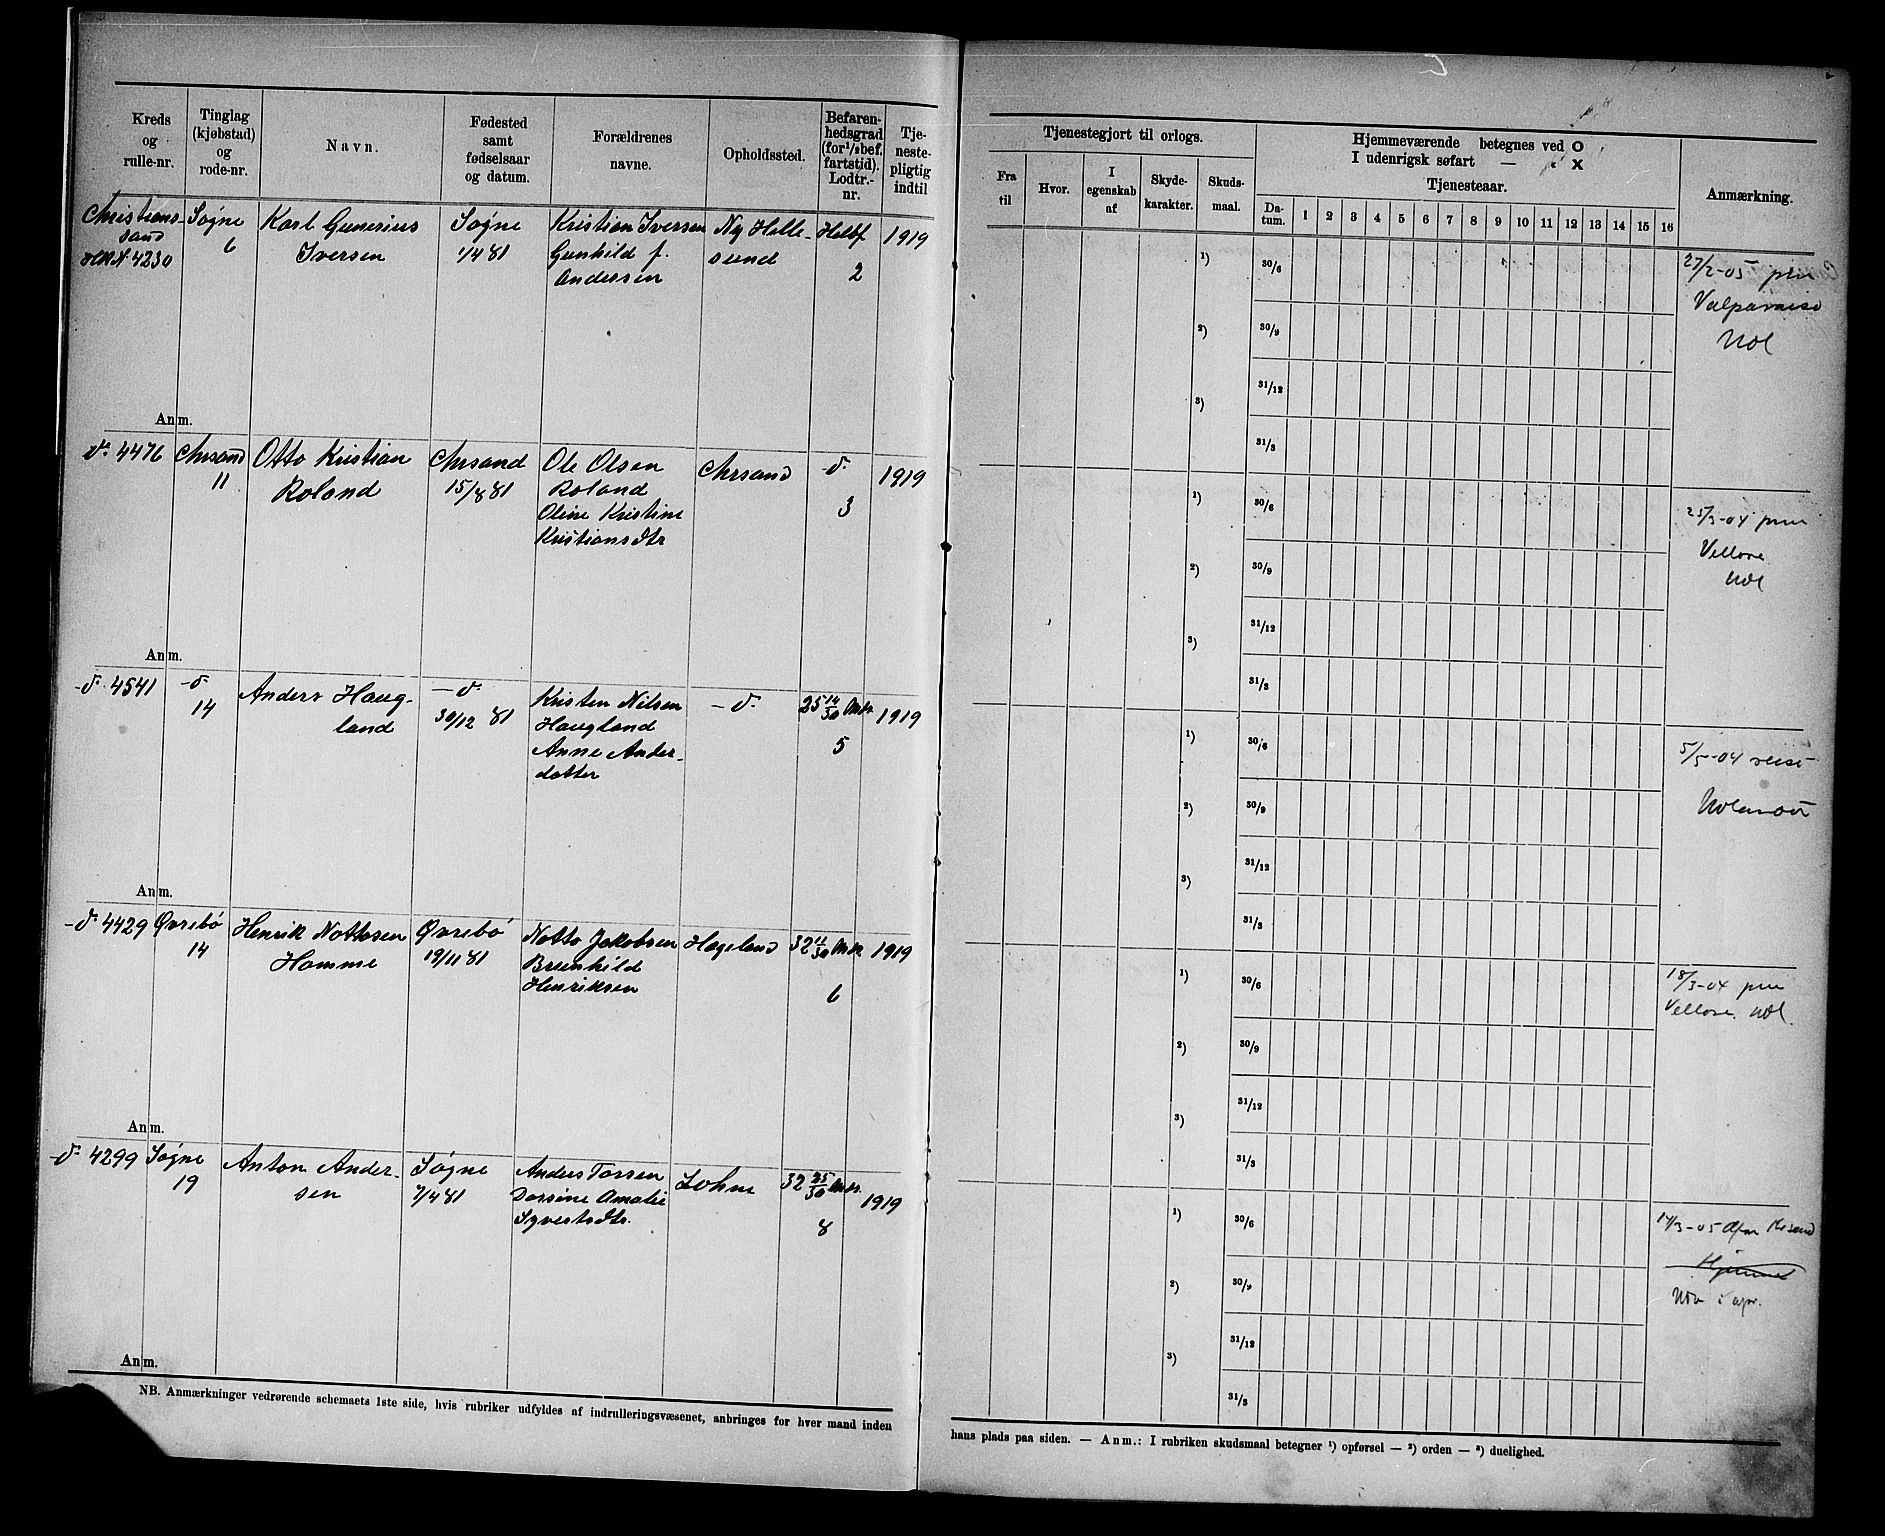 Kreds
og
rulle-nr.
Tinglag
(kjøbstad)
og
rode-nr.
Navn.
Fødested
samt
fødselsaar
og datum.
Forældrenes
navne.
Opholdssted.
Befaren-
hedsgrad
(for ¹/₁ bef.
fartstid).
Lodtr.-
nr.
Tje-
neste-
pligtig
indtil
Christians-
sand
4230
Søgne
6
Karl Gunerius
Iversen
Søgne
1/4 81
Kristian Iversen
Gunhild f.
Andersen
Ny Helle-
sund
Helbf
2
1919
Anm.
d. 4476
Chrsand
11
Otto Kristian
Roland
Chrsand
15/8 81
Ole Olsen
Roland
Oline Kristine
Kristiansdtr
Chrsand
d.
3
1919
Anm.
d. 4541
d.
14
Anders Haug-
land
d.
30/12 81
Kristen Nilsen
Haugland
Anne Ander-
datter
d.
25 14/30 Mdr.
5
1919
Anm.
d. 4429
Øvrebø
14
Henrik Nottosen
Homme
Øvrebø
19/11 81
Notto Jakobsen
Brunhild
Henriksen
Hægeland
32 11/30 Mdr.
6
1919
Anm.
d. 4299
Søgne
19
Anton Ander-
sen
Søgne
7/4 81
Anders Torsen
Dorsine Amalie
Syvertsdtr.
Lohne
32 25/30 Mdr.
8
1919
Anm.
NB. Anmærkninger vedrørende schemaets 1ste side, hvis rubriker udfyldes af indrulleringsvæsenet, anbringes for hver mand inden
Tjenestegjort til orlogs.
Fra
til
Hvor.
I
egenskab
af
Skyde-
karakter.
Skuds-
maal.
Hjemmeværende betegnes ved O
I udenrigsk søfart — X
Tjenesteaar.
Da-
tum.
1 2 3 4 5 6 7 8 9 10 11 12 13 14 15 16
Anmærkning.
¹) 30/6
²) 30/9
31/12
³)
31/3
27/2-05 pm
Valparaiso
Udl
¹) 30/6
²) 30/9
31/12
³)
31/3
25/3-04 pm
Vellore
Udl
¹) 30/6
²) 30/9
31/12
³)
31/3
5/5-04 reist
¹) 30/6
²) 30/9
31/12
³)
31/3
18/3-04 pm
Vellore. Udl.
¹) 30/6
²) 30/9
31/12
³)
31/3
14/3-05
Hjemme
hans plads paa siden. — Anm.: I rubriken skudsmaal betegner ¹) opførsel — ²) orden — ³) duelighed.